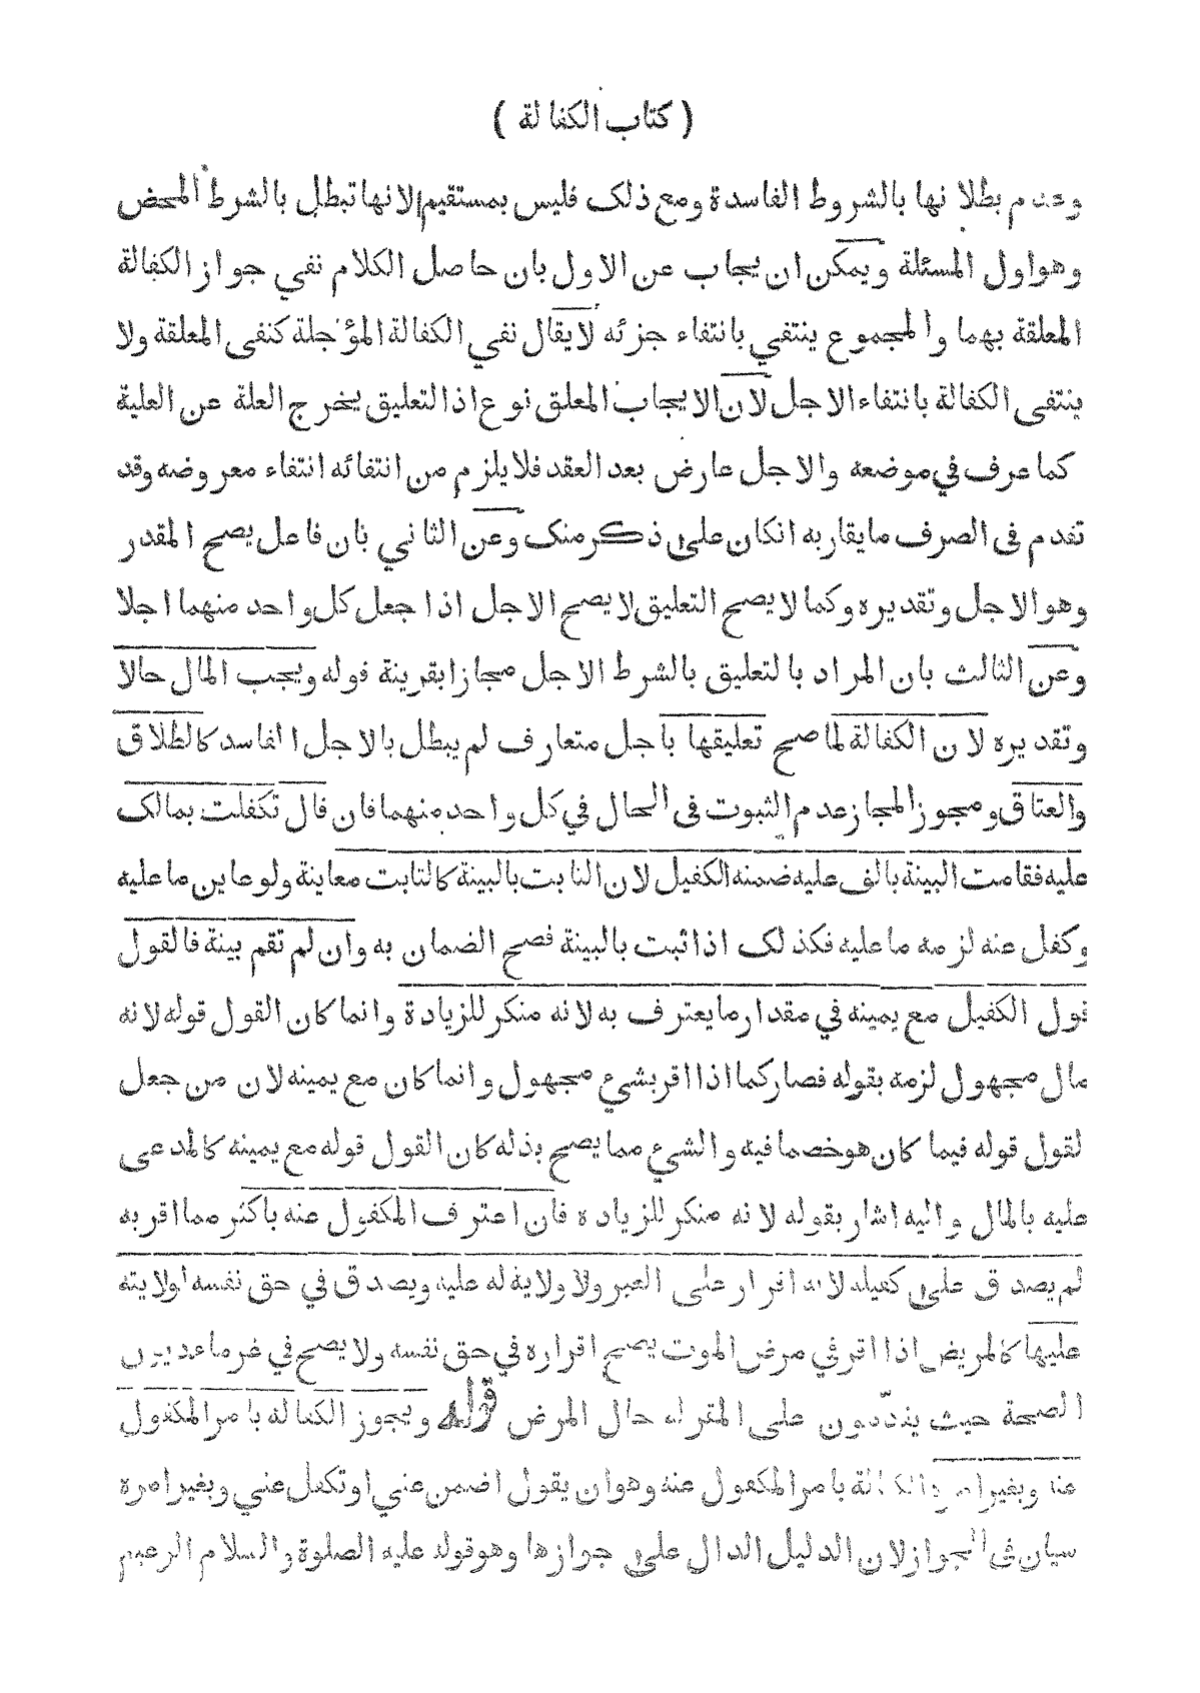 ( كتاب الكفالة )
وعدم بطلانها بالشروط الفاسدة ومع ذلك فليس بمستقيم لانها تبطل بالشرط المحض
وهو اول المسئلة ويمكن ان يجاب عن الاول بان حاصل الكلام نفي جواز الكفالة
المعلقة بهما والمجموع ينتفي بانتفاء جزئه لايقال نفي الكفالة المؤجلة كنفى المعلقة ولا
ينتفى الكفالة بانتفاء الاجل لان الايجاب المعلق نوع اذ التعليق يخرج العلة عن العلية
كما عرف في موضعه والاجل عارض بعد العقد فلا يلزم من انتفائه انتفاء معروضه وقد
تقدم فى الصرف ما يقاربه انكان على ذكر منك وعن الثاني بان فاعل يصح المقدر
وهو الاجل وتقديره وكما لا يصح التعليق لا يصح الاجل اذا جعل كل واحد منهما اجلا
وعن الثالث بان المراد بالتعليق بالشرط الاجل مجازا بقرينة قوله ويجب المال حالا
وتقديره لان الكفالة لما صح تعليقها باجل متعارف لم يبطل بالاجل الفاسد كالطلاق
والعتاق ومجوز المجاز عدم الثبوت فى الحال في كل واحد منهما فان قال تكفلت بمالك
عليه فقامت البينة بالف عليه ضمنه الكفيل لان الثابت بالبينة كالثابت معاينة ولو عاين ما عليه
وكفل عنه لزمه ما عليه فكذلك اذا ثبت بالبينة فصح الضمان به وان لم تقم بينة فالقول
قول الكفيل مع يمينه في مقدار ما يعترف به لانه منكر للزيادة وانما كان القول قوله لانه
مال مجهول لزمه بقوله فصار كما اذا اقر بشيء مجهول وانما كان مع يمينه لان من جعل
لقول قوله فيما كان هو خصما فيه والشيء مما يصح بذله كان القول قوله مع يمينه كالمدعى
عليه بالمال واليه اشار بقوله لانه منكر للزيادة فان اعترف المكفول عنه باكثر مما اقر به
لم يصدق على كفيله لانه اقرار على الغير ولا ولاية له عليه ويصدق في حق نفسه لولايته
عليها كالمريض اذا اقر في مرض الموت يصح اقراره في حق نفسه ولا يصح في غرماء ديون
الصحة حيث يقدمون على المقر له حال المرض قوله ويجوز الكفالة بامر المكفول
عنه وبغير امره والكفالة بامر المكفول عنه وهو ان يقول اضمن عني او تكفل عني وبغير امره
سيان فى الجواز لان الدليل الدال على جوازها وهو قوله عليه الصلوة والسلام الزعيم